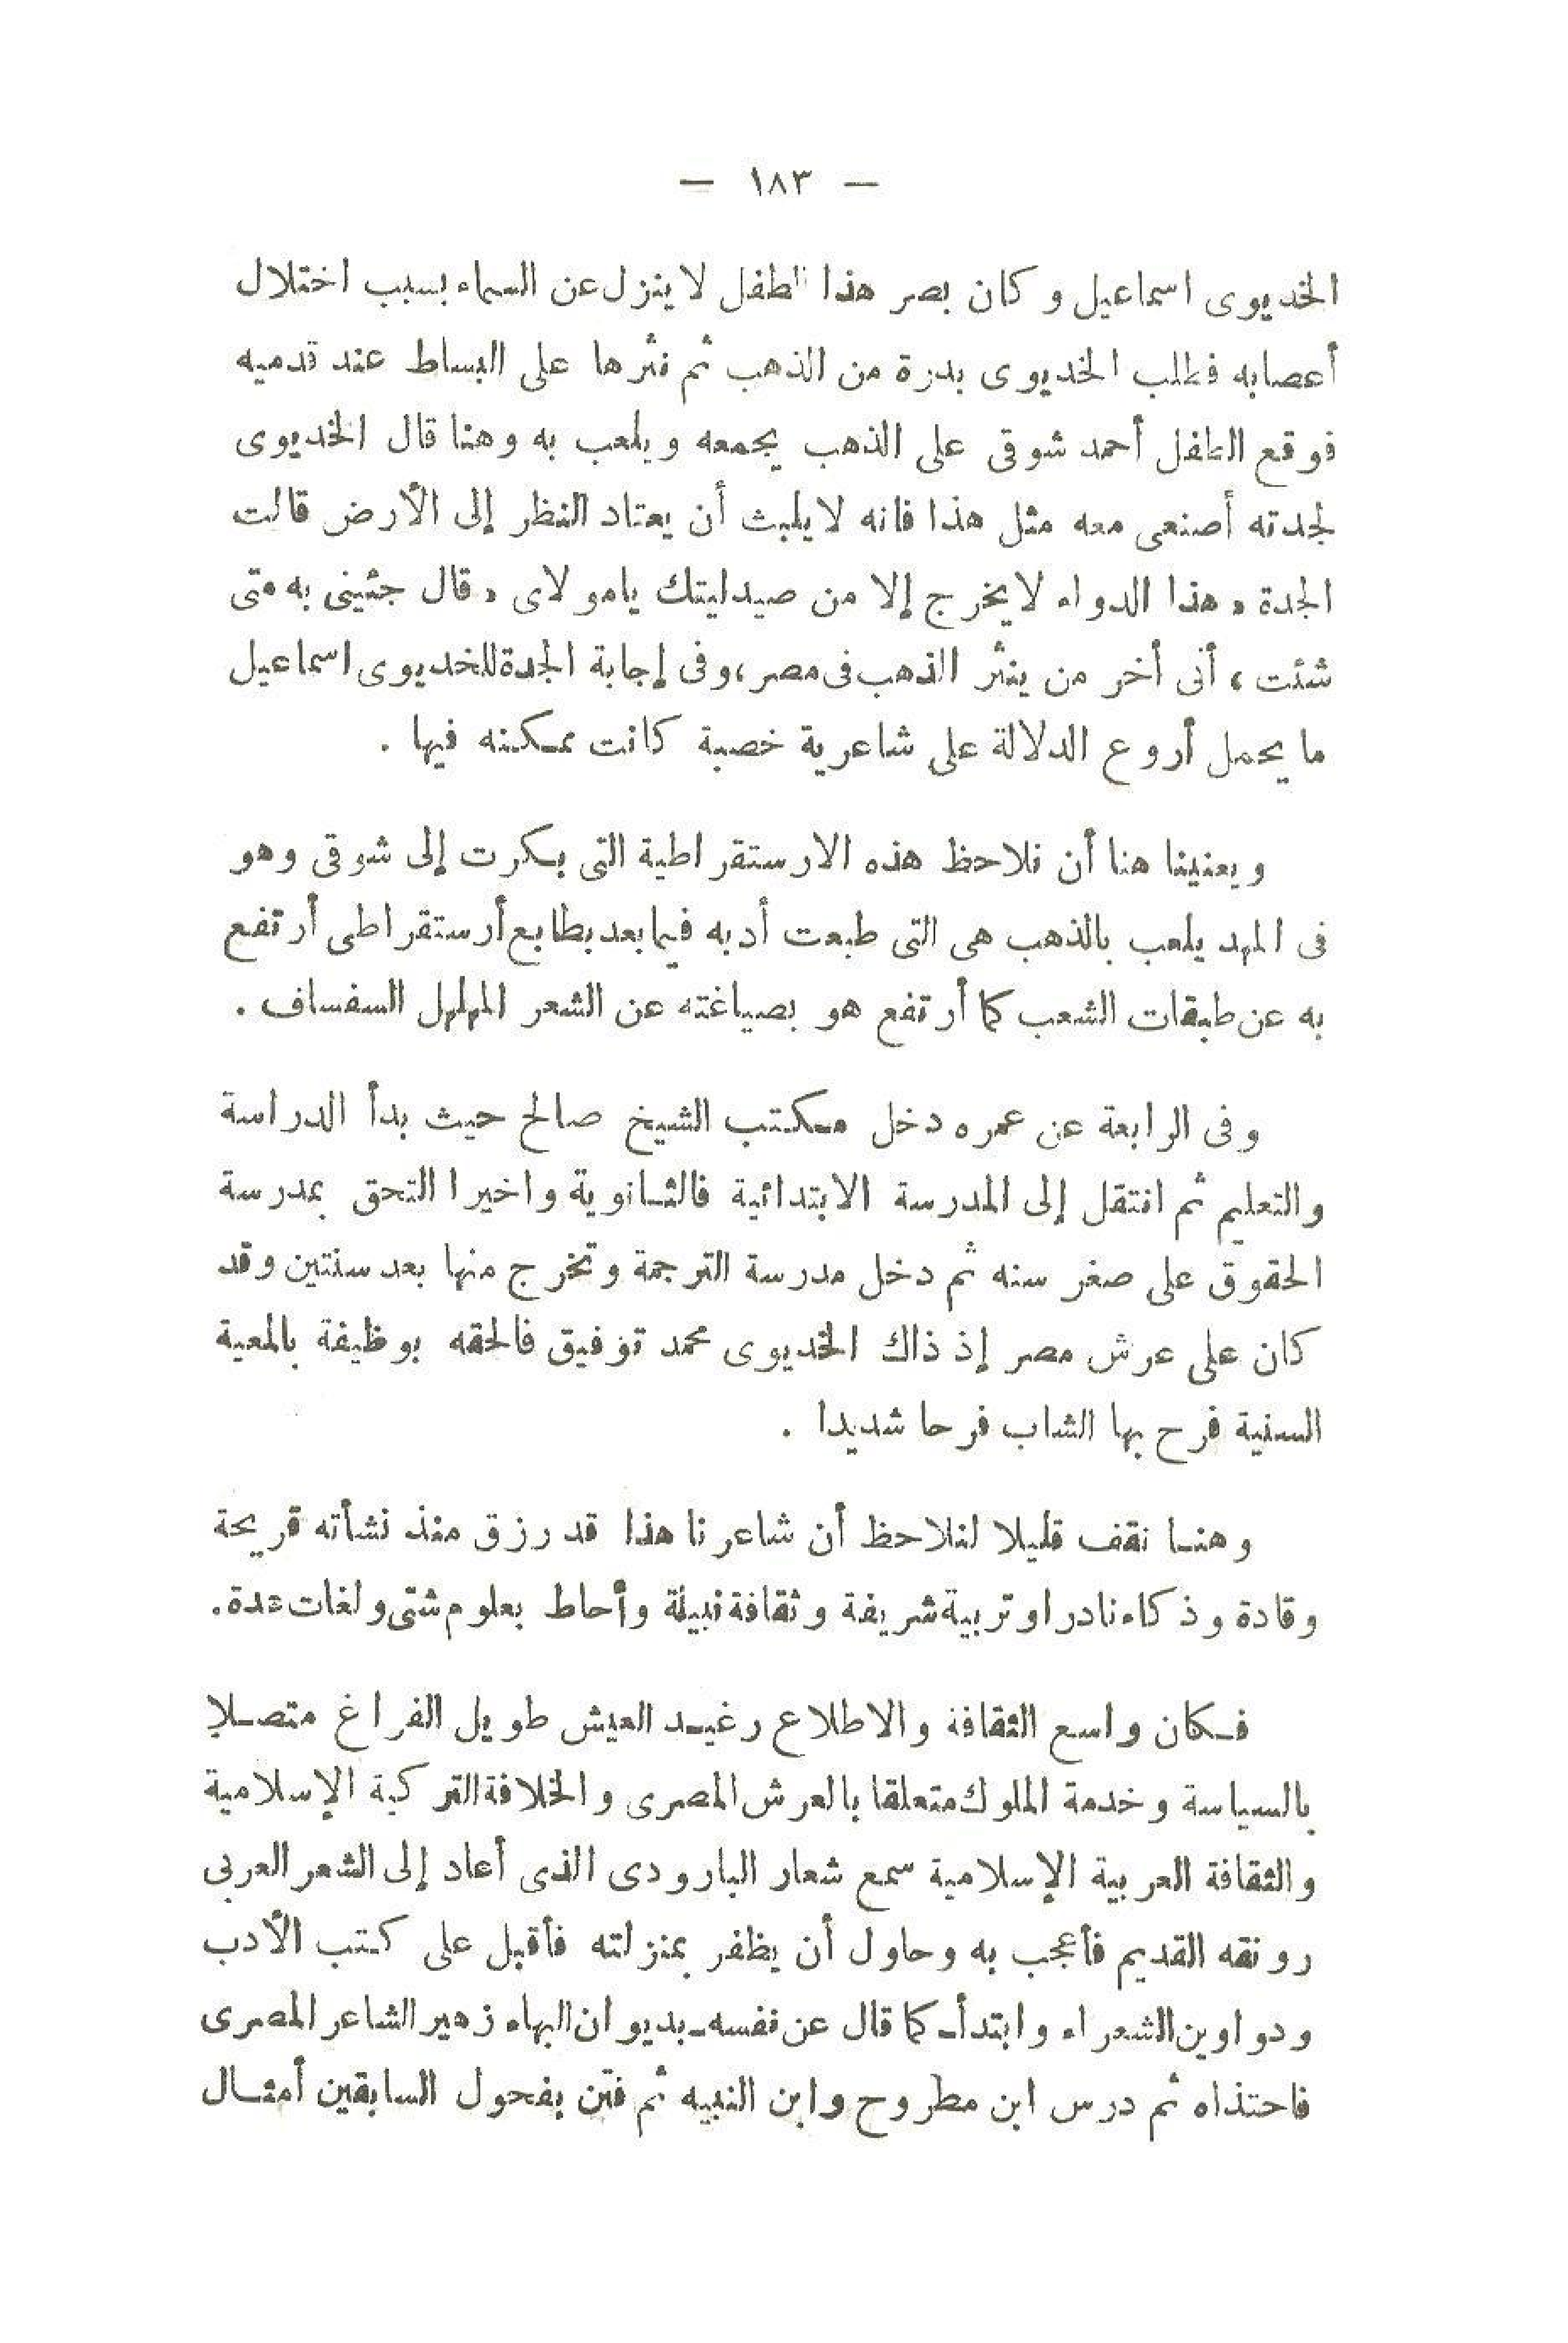 — ١٨٣ —
الخديوى اسماعيل وكان بصر هذا الطفل لا ينزل عن السماء بسبب اختلال
أعصابه فطلب الخديوى بدرة من الذهب ثم نثرها على البساط عند قدميه
فوقع الطفل أحمد شوقى على الذهب يجمعه ويلعب به وهنا قال الخديوى
لجدته أصنعى معه مثل هذا فانه لا يلبث أن يعتاد النظر إلى الأرض قالت
الجدة «هذا الدواء لا يخرج إلا من صيدليتك يامولاى» قال جئينى به متى
شئت، أنى أخر من ينثر الذهب فى مصر، وفى إجابة الجدة للخديوى اسماعيل
ما يحمل أروع الدلالة على شاعرية خصبة كانت ممكنه فيها .
ويعنينا هنا أن نلاحظ هذه الارستقراطية التى بكرت إلى شوقى وهو
فى المهد يلعب بالذهب هى التى طبعت أدبه فيما بعد بطابع أرستقراطى أرتفع
به عن طبقات الشعب كما أرتفع هو بصياغته عن الشعر المهلهل السفساف .
وفى الرابعة عن عمره دخل مكتب الشيخ صالح حيث بدأ الدراسة
والتعليم ثم انتقل إلى المدرسة الابتدائية فالثانوية واخيرا التحق بمدرسة
الحقوق على صغر سنه ثم دخل مدرسة الترجمة وتخرج منها بعد سنتين وقد
كان على عرش مصر إذ ذاك الخديوى محمد توفيق فالحقه بوظيفة بالمعية
السنية فرح بها الشاب فرحا شديدا .
وهنا نقف قليلا لنلاحظ أن شاعرنا هذا قد رزق منذ نشأته قريحة
وقادة وذكاء نادرا وتربية شريفة وثقافة نبيلة وأحاط بعلوم شتى ولغات عدة.
فكان واسع الثقافة والاطلاع رغيد العيش طويل الفراغ متصلا
بالسياسة وخدمة الملوك متعلقا بالعرش المصرى والخلافة التركية الإسلامية
والثقافة العربية الإسلامية سمع شعار البارودى الذى أعاد إلى الشعر العربى
رونقه القديم فأعجب به وحاول أن يظفر بمنزلته فأقبل على كتب الأدب
ودواوين الشعراء وابتدأ ـ كما قال عن نفسه ـ بديوان البهاء زهير الشاعر المصرى
فاحتذاه ثم درس ابن مطروح وابن النبيه ثم فتن بفحول السابقين أمثال